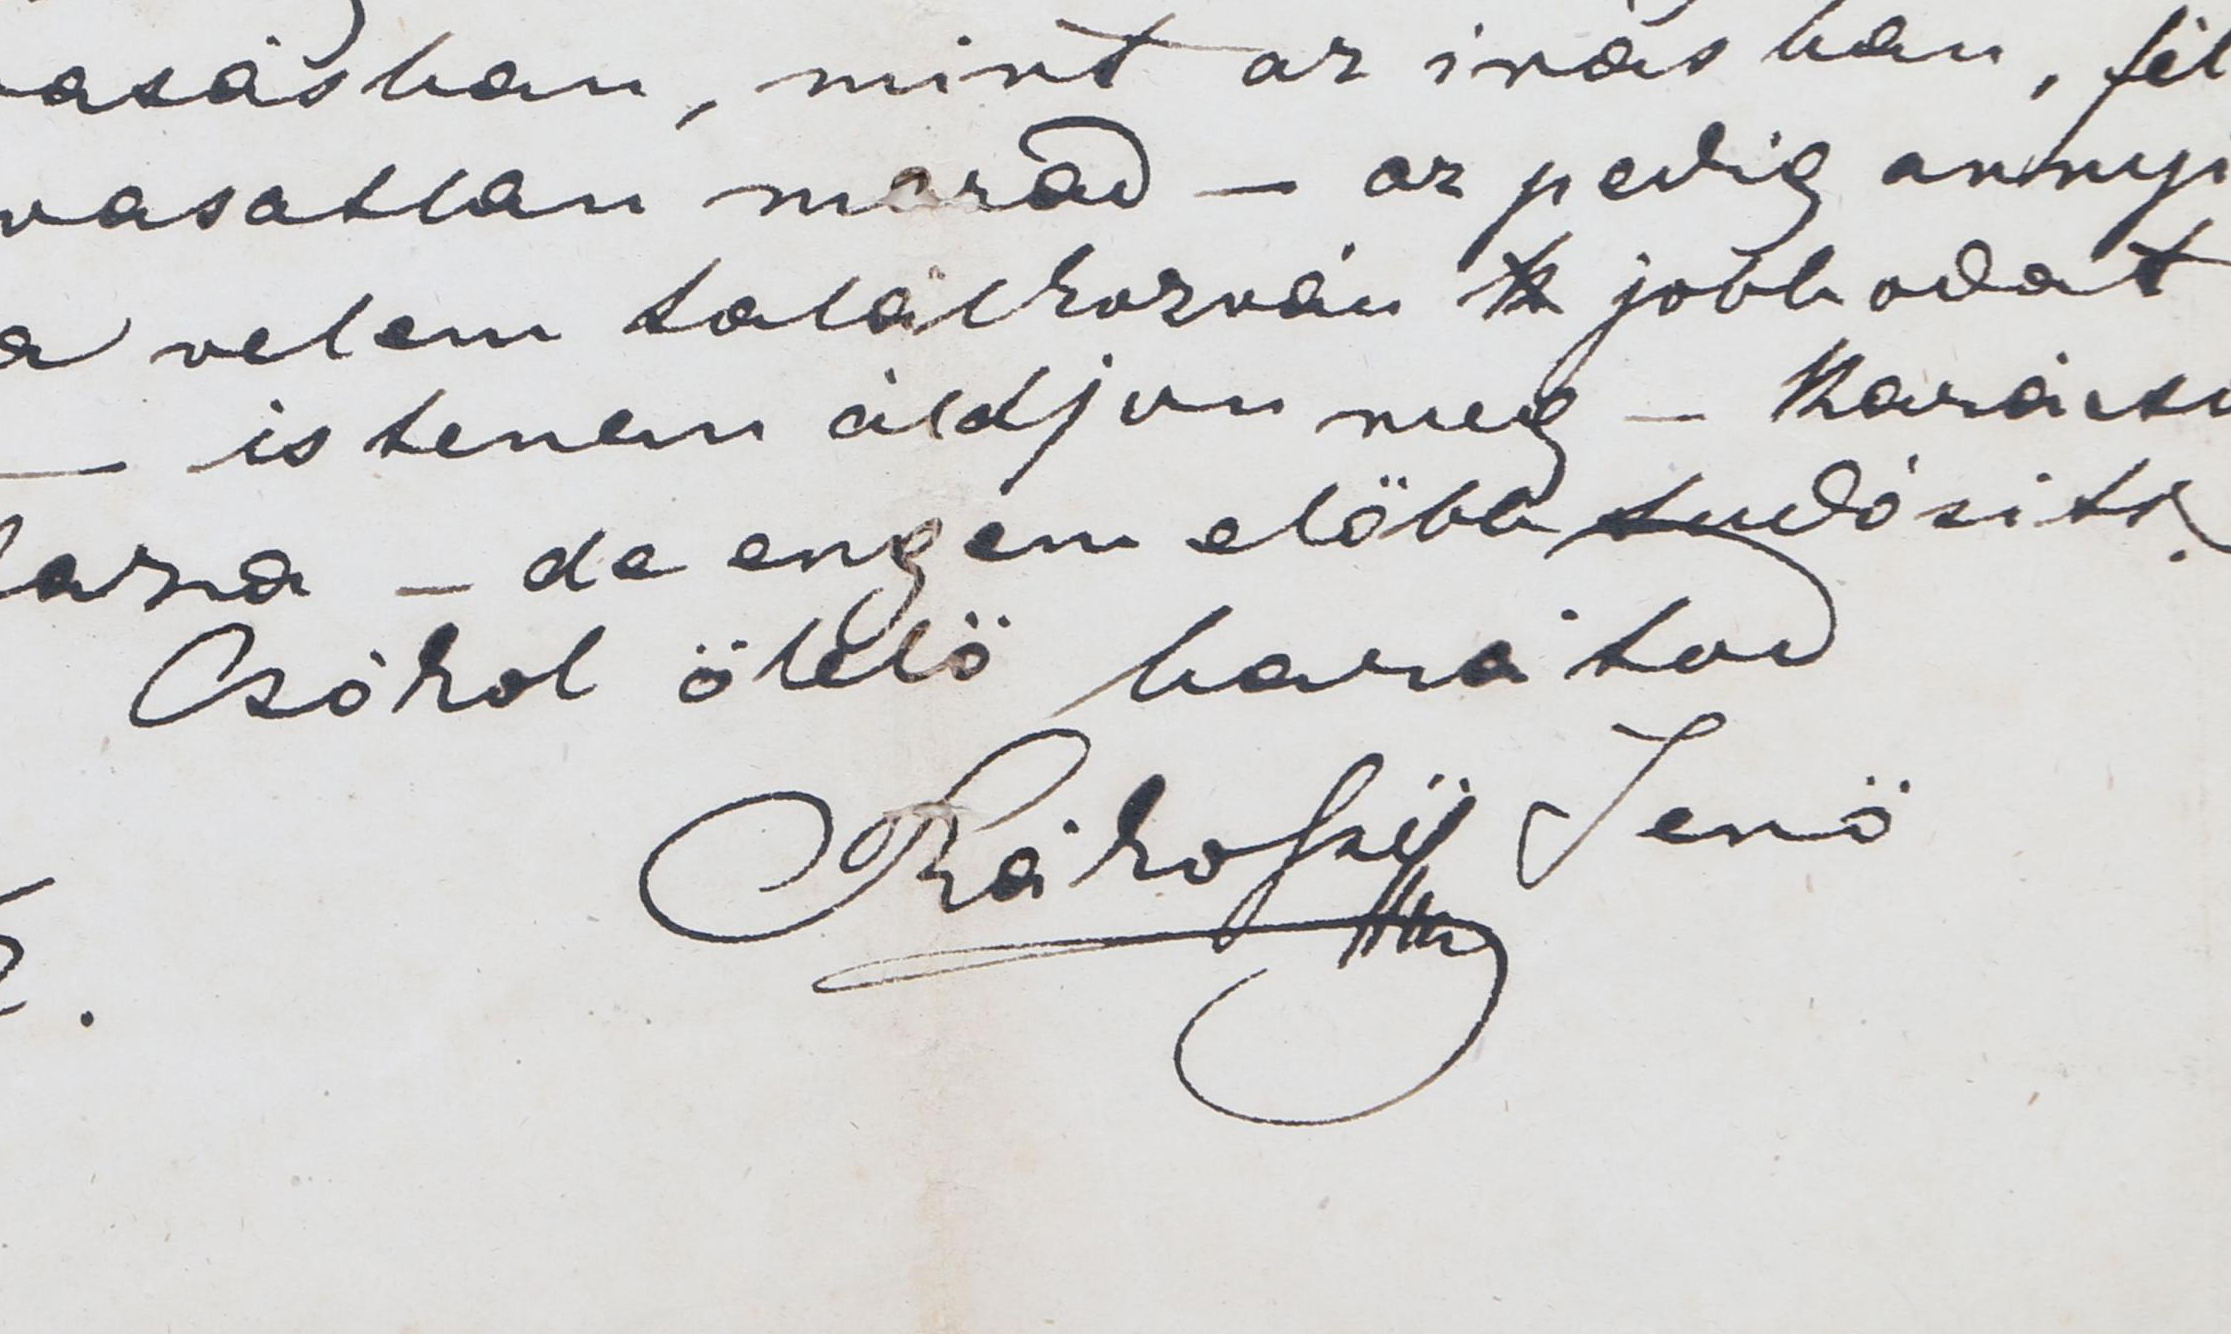 asásban, mint az irásban, fél
vasatlan marad — az pedig annyi
a velem találkozván jobb odat
— istenem áldjon meg — Karácso
haza — de engem elöbb tudósits.
Csókol ölelö barátod
Rákosÿ Jenö